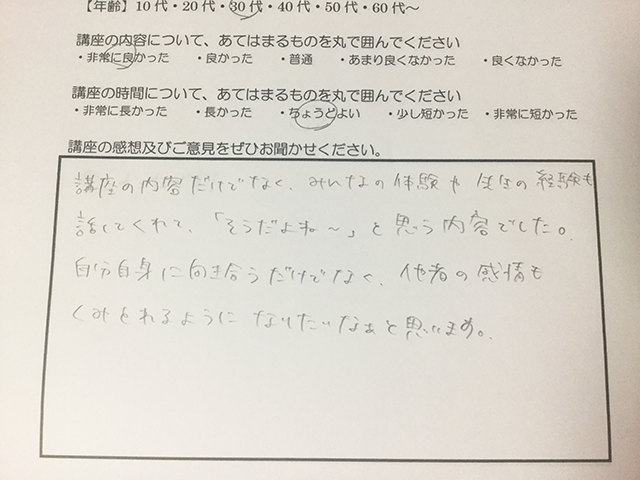 【年齢】10代・20代・30代・40代・50代・60代～
講座の内容について、あてはまるものを丸で囲んでください
・非常に良かった ・良かった ・普通 ・あまり良くなかった ・良くなかった
講座の時間について、あてはまるものを丸で囲んでください
・非常に長かった ・長かった ・ちょうどよい ・少し短かった ・非常に短かった
講座の感想及びご意見をぜひお聞かせください。
講座の内容だけでなく、みんなの体験や先生の経験も
話してくれて、「そうだよね～」と思う内容でした。
自分自身に向き合うだけでなく、他者の感情も
くみとれるようになりたいなぁと思います。